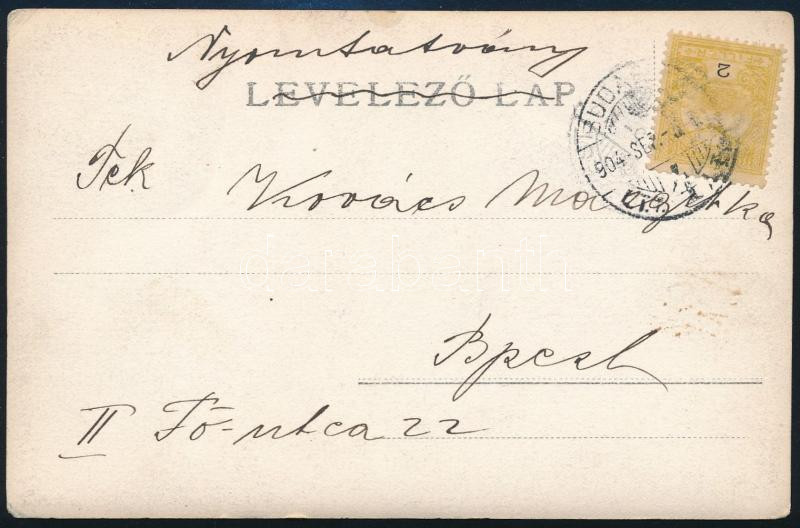 Nyomtatvány
LEVELEZŐ LAP
2
BUDA
904 SEP.
Tek Kovács Margitka
darabanth
Bpest
II Fő-utca 22